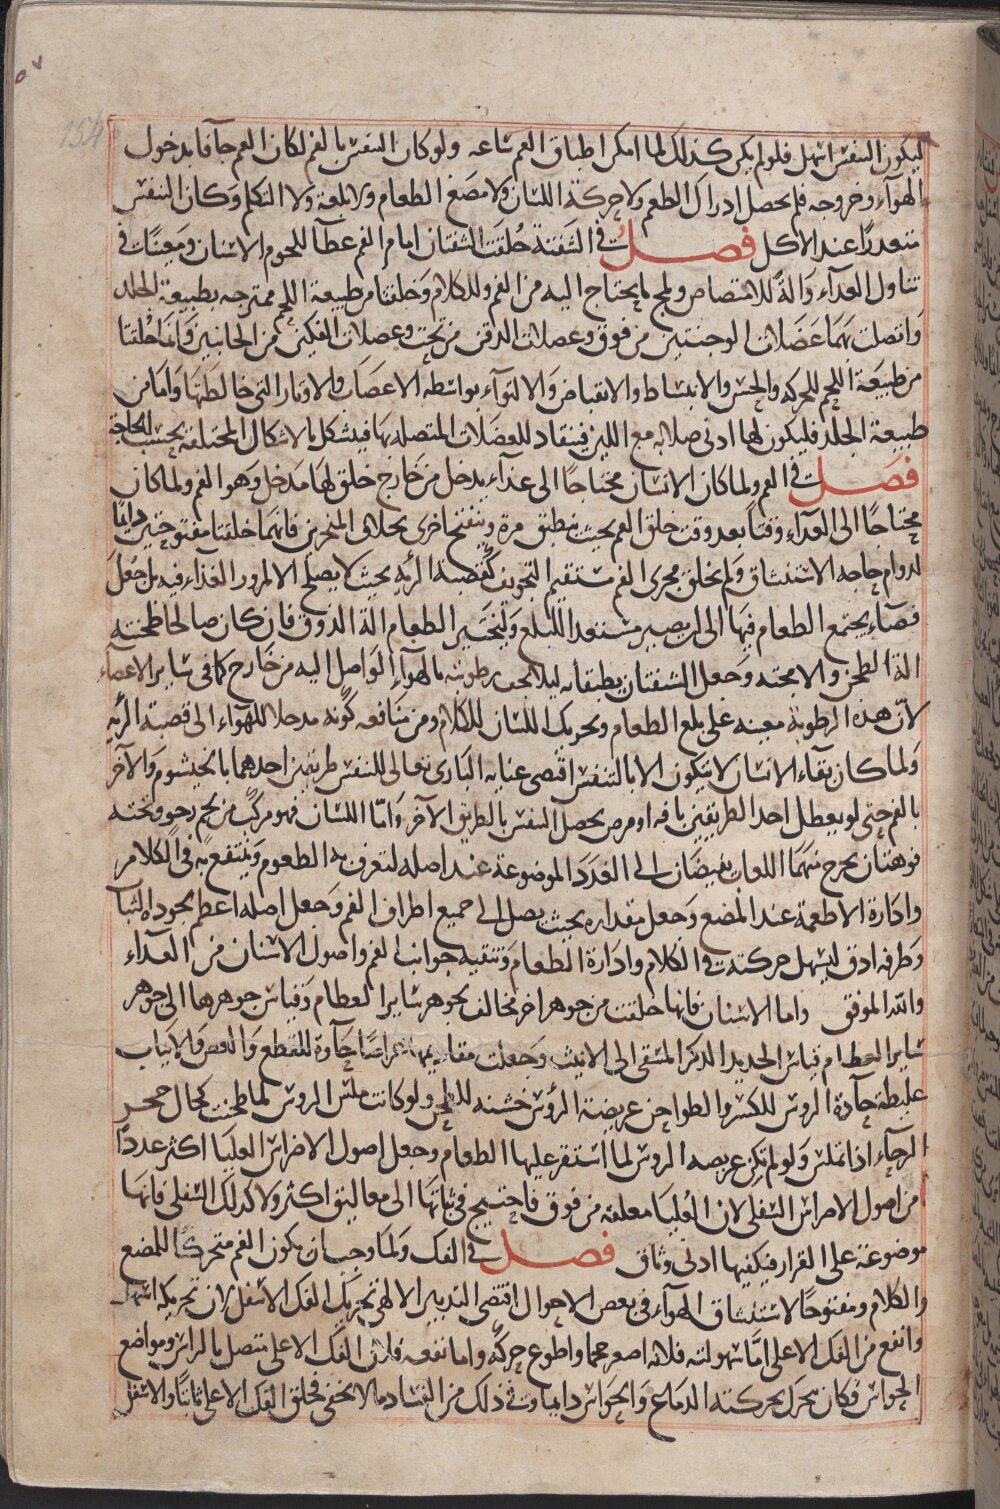 ٥٧
154
ليكون النفس اسهل فلو لم يكن كذلك لما امكن اطباق الفم ساعه ولو كان النفس بالفم لكان الفم جافا بدخول
الهوآء وخروجه فلم يحصل ادراك الطعم ولا حركة اللسان ولا مضغ الطعام ولا بلعه ولا التكلم وكان النفس
متعددا عند الاكل فصل في الشفة خلقت الشفتان امام الفم غطآ للحوم الاسنان ومعينات في
تناول الغدآء وآلة للامتصاص ولمج ما يحتاج اليه من الفم وللكلام وخلقتا من طبيعة اللحم ممترجه بطبيعة الجلد
واتصلت بهما عضلات الوجنتين من فوق وعصلات الدقن من تحت وعصلات الفكين من الجانبين وانما خلقتا
من طبيعة اللحم للحركه والحس والانبساط والانقباض والالتوآء بواسطه الاعصاب والاوتار التى خالطتها واما من
طبيعة الجلد فليكون لها ادنى صلابه مع اللين فينقاد للعضلات المتصله بها فيتشكل بالاشكال المختلفه بحسب الحاجة
فصل في الفم ولما كان الانسان محتاجا الى غدآء يدخل من خارج خلق لها مدخل وهو الفم ولما كان
محتاجا الى الغدآء وقتا بعد وقت خلق الفم بحيث ينطبق مرة وينفتح اخرى بخلاف المنخرين فانهما خلقتا مفتوحتين دايما
لدوام حاجه الاستنشاق ولم يخلق مجرى الفم مستقيم التجويف كقصبة الريه بحيث لا يصلح الا لمرور الغذاء فيه بل جعل
فضآء يجتمع الطعام فيها الى ان يصير مستعدا للبلع وليختبر الطعام الة الذوق فان كان صالحا طحنته
الة الطحن والا مجته وجعل الشفتان يطبقانه ليلا يجف رطوبته بالهوآء الواصل اليه من خارج كما في ساير الاعضآء
لان هذه الرطوبة معينه على بلع الطعام وتحريك اللسان للكلام ومن منافعه كونه مدخلا للهوآء الى قصبة الريه
ولما كان بقآء الانسان لا يتكون الا بالتنفس اقتضى عنايه البارى تعالى للنفس طريقين احدهما بالخيشوم والآخر
بالفم حتى لو يعطل احد الطريقين بافه او مرض يحصل النفس بالطريق الآخر واما اللسان فهو مركب من لحم رخو وتحته
فوهتان يخرج منهما اللعاب يفيضان الى الغدد الموضوعة عند اصله لتعرف به الطعوم وينتفع به في الكلام
وادارة الاطعمة عند المضغ وجعل مقداره بحيث يصل الى جميع اطراف الفم وجعل اصله اعظم بجوده الثبات
وطرفه ادق ليسهل حركته في الكلام وادارة الطعام وتنقيه جوانب الفم واصول الاسنان من الغدآء
والله الموفق واما الاسنان فانها خلقت من جوهر اخر مخالف بجوهر ساير العظام وقياس جوهرها الى جوهر
ساير العظام قياس الحديد الدكر المسقى الى الانيث وجعلت مقاديمها عراضا حآدة للقطع والعض والانياب
غليظه حآدة الروس للكسر والطواحن عريضة الرؤس خشنه للطحن ولو كانت ملس الروس لما طحنت كحال حجر
الرحآء اذا تملس ولو لم تكن عريضه الروس لما استقر عليها الطعام وجعل اصول الاضراس العليا اكثر عددا
من اصول الاضراس السفلى لان العليا معلقه من فوق فاحتيج في ثباتها الى معاليق اكثر ولا كذلك السفلى فانها
موضوعة على القرار فيكفيها ادنى وثاق فصل في الفك ولما وجب ان يكون الفم متحركا للمضع
والكلام ومفتوحا لاستنشاق الهوآء فى بعض الاحوال اقتضى التدبير الالهى تحريك الفك الاسفل لان تحريكه اسهل
وانفع من الفك الاعلى اما سهولته فلانه اصغر حجما واطوع حركه واما نفعه فلان الفك الاعلى متصل بالراس ومواضع
الحواس فكان يتحرك بحركته الدماغ والحواس دايما وفي ذلك من الفساد ما لا يخفى فخلق الفك الاعلى ثابتا والاسفل